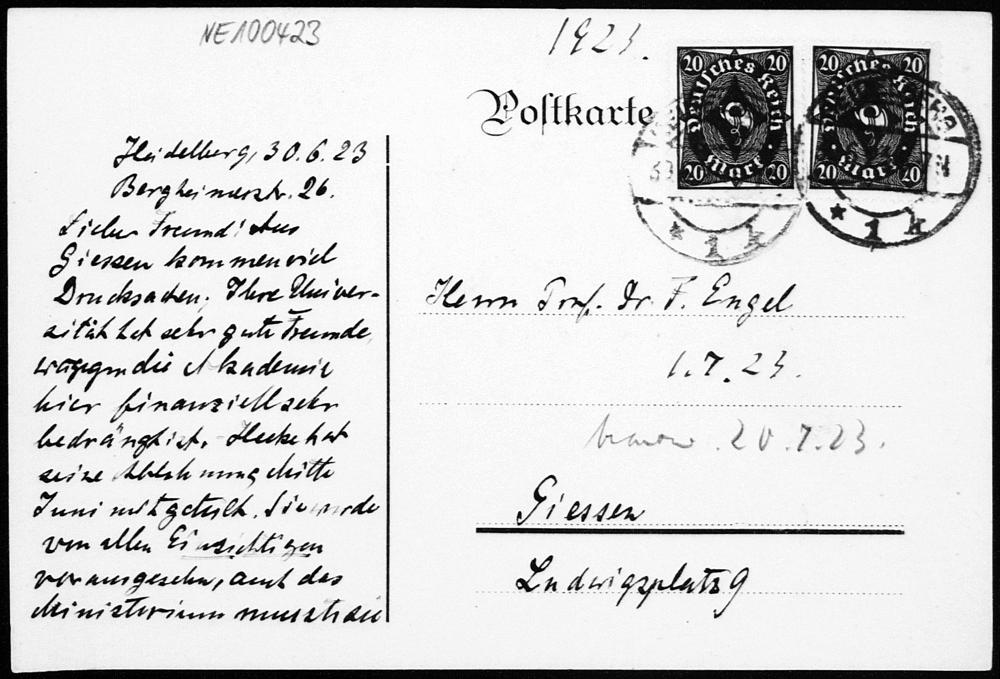 NE100423
1923.
Postkarte
20 20
Deutsches Reich
Mark
20 20
20 20
Deutsches Reich
Mark
20 20
* 1 k
* 1 k
Heidelberg, 30.6.23
Bergheimerstr. 26.
Lieber Freund! Aus
Giessen kommen viel
Drucksachen; Ihre Univer-
sität hat sehr gute Freunde,
wogegen die Akademie
hier finanziell sehr
bedrängt ist. Hecke hat
seine Ablehnung Mitte
Juni mitgeteilt. Sie wurde
von allen Einsichtigen
vorausgesehn, auch das
Ministerium musste sie
Herrn Prof. Dr. F. Engel
1.7.23.
20.7.23.
Giessen
Ludwigsplatz 9